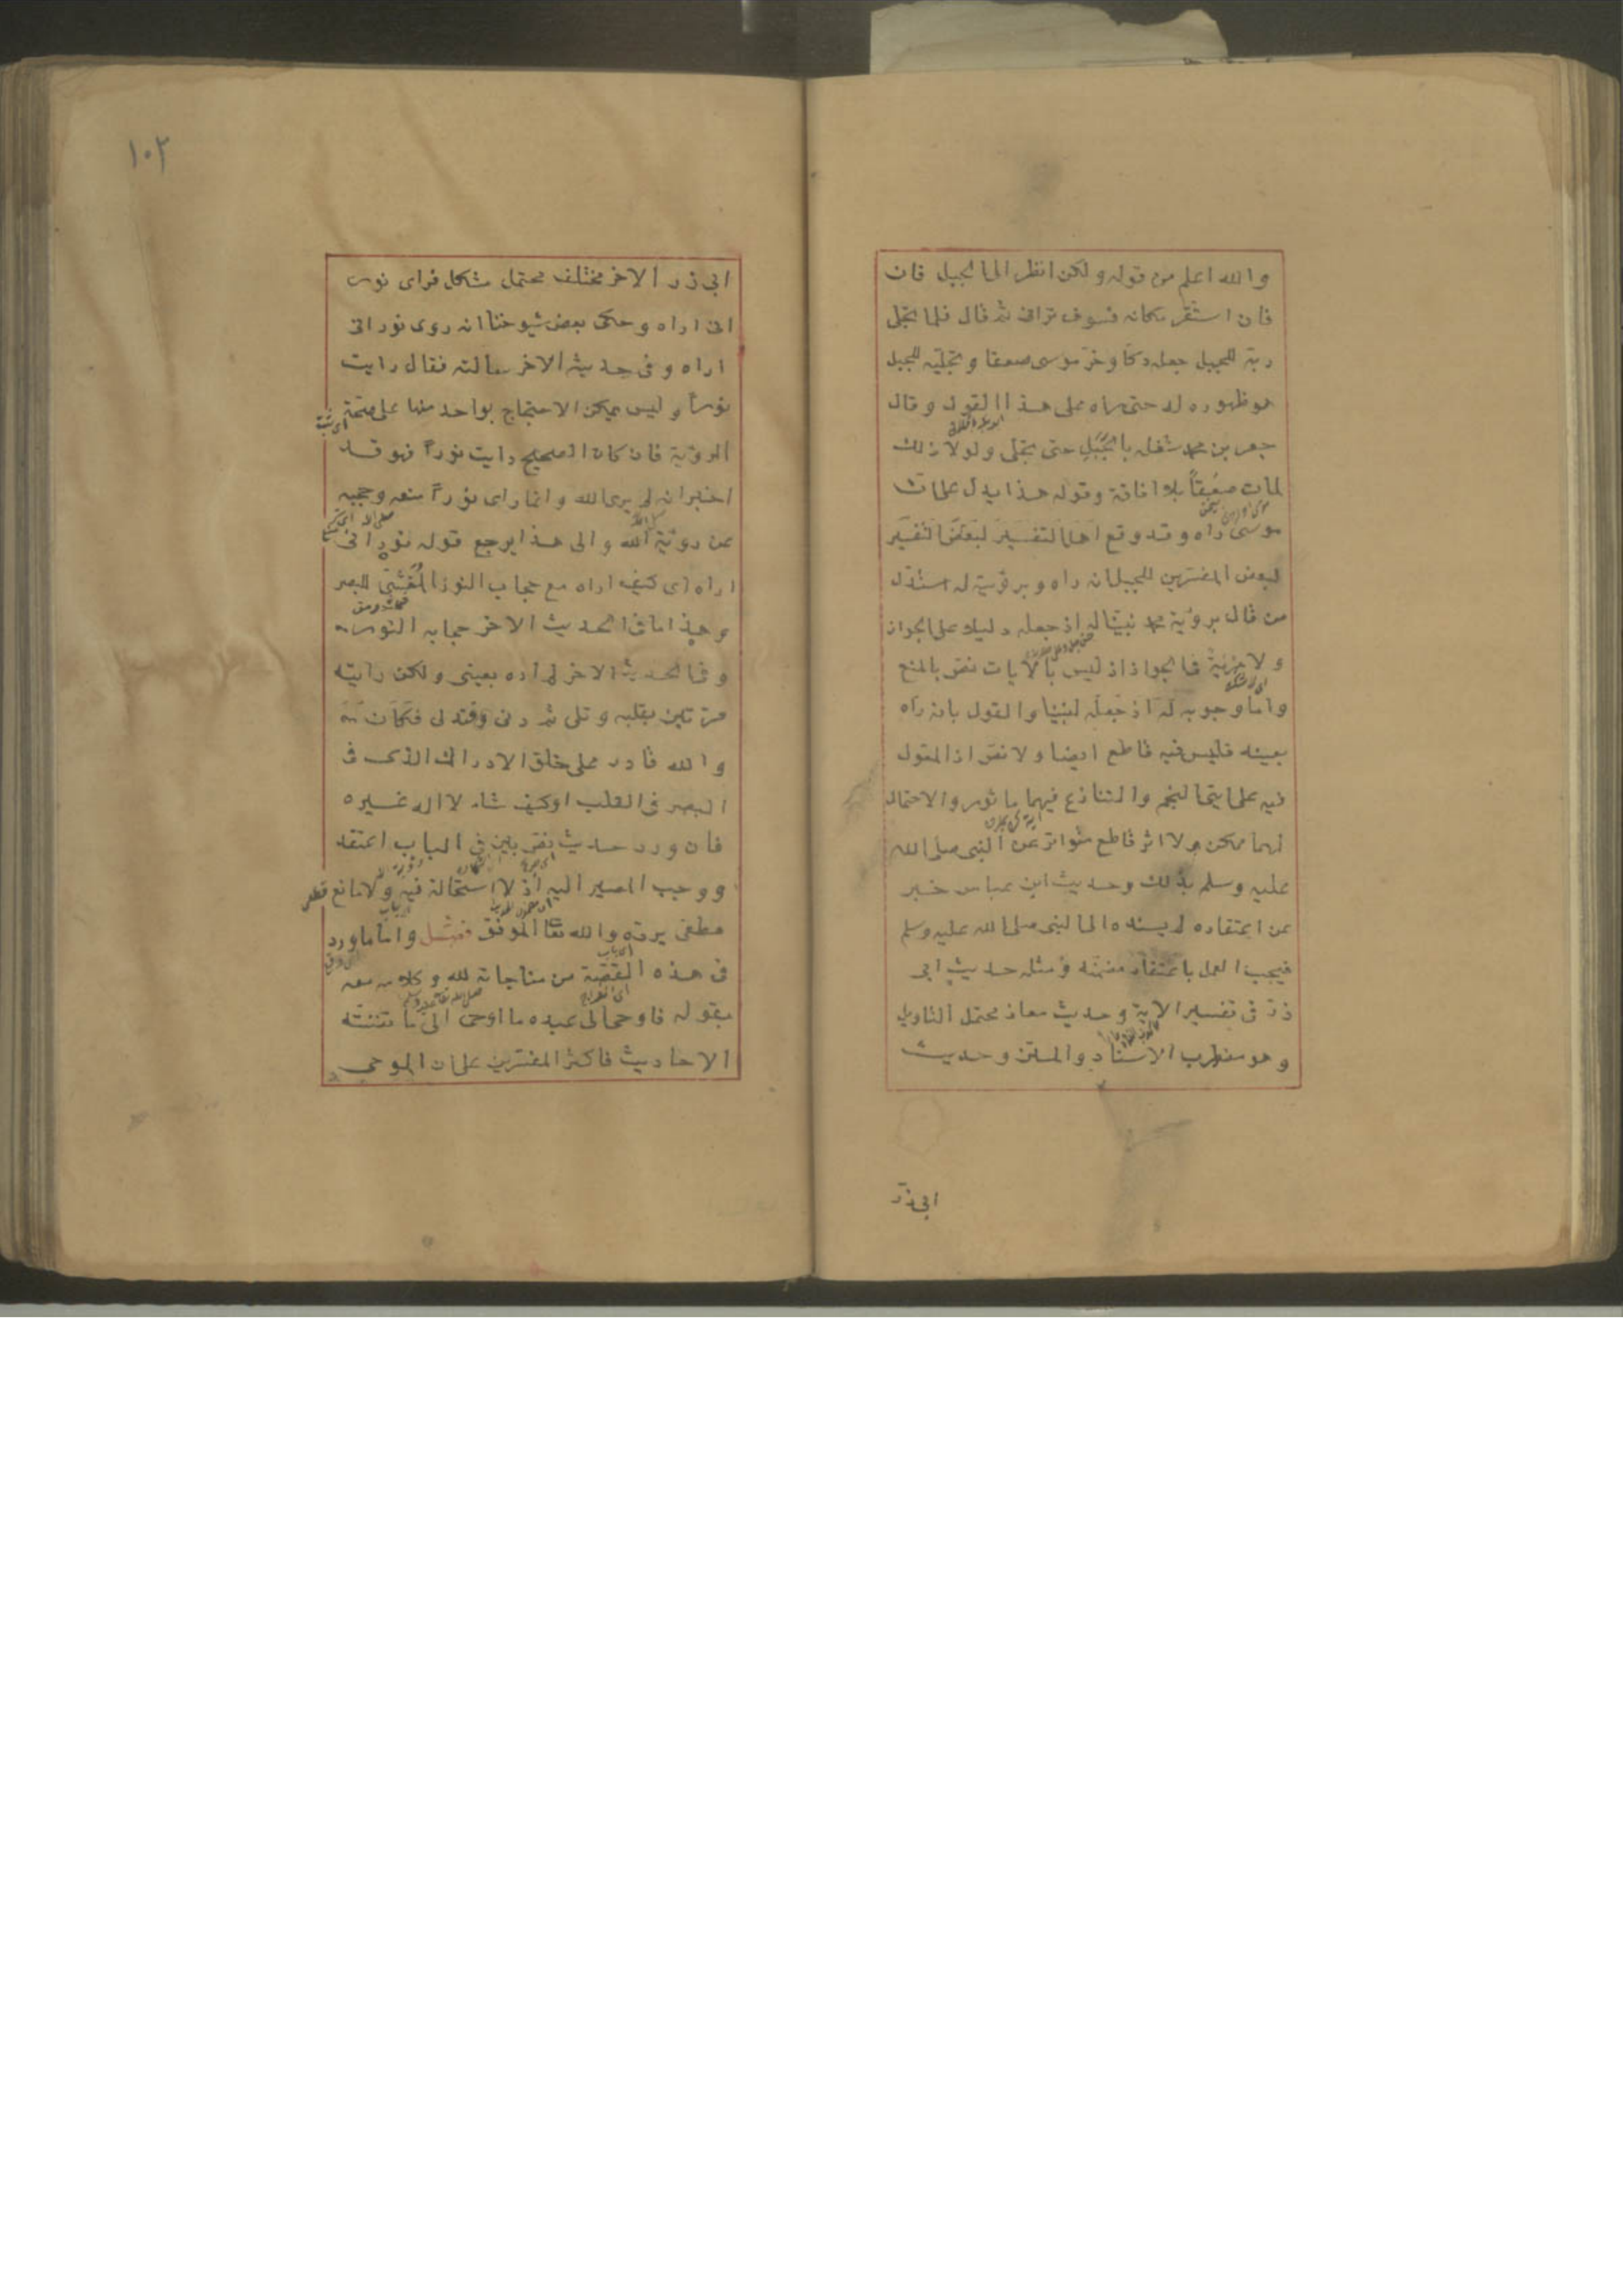 والله اعلم من قوله ولكن انظر الى الجبل فان
فان استقر مكانه فسوف ترانى ثم قال فلما تجلى
ربه للجبل جعله دكا وخر موسى صعقا وتجليه للجبل
هو ظهوره له حتى راه على هذا القول وقال
جعفر بن محمد شغله بالجبل حتى تجلى ولولا ذلك
لمات صعقاً بلا افاقة وقوله هذا يدل على ان
موسى راه وقد وقع
لبعض المفسرين للجبل انه راه وبرؤية له استدل
من قال برؤية محمد نبينا له اذ جعله دليلا على الجواز
ولا مزية فى الجواز اذ ليس بالايات نص بالمنع
واما وجوبه له اذ جعله لنبينا والقول بانه راه
بعينه فليس فيه قاطع ايضا ولا نص اذ المعول
فيه على ايتى النجم والتنازع فيهما ماثور والاحتمال
لهما ممكن ولا اثر قاطع متواتر عن النبى صلى الله
عليه وسلم بذلك وحديث ابن عباس خبر
عن اعتقاده لم يسنده الى النبى صلى الله عليه وسلم
فيجب العمل باعتقاد مضمنه ومثله حديث ابى
ذر فى تفسير الاية وحديث معاذ محتمل التاويل
وهو مضطرب الاسناد والمتن وحديث
ابى ذر
١٠٢
ابى ذر الاخر مختلف محتمل مشكل فراى نور
انى اراه وحكى بعض شيوخنا انه روى نور انى
اراه وفى حديثه الاخر سالته فقال رايت
نوراً وليس يمكن الاحتجاج بواحد منها على صحة
الرؤية فان كان الصحيح رايت نوراً فهو قد
اخبر انه لم يرى الله وانما راى نوراً منعه وحجبه
عن رؤية الله والى هذا يرجع قوله نور انى
اراه اى كيف اراه مع حجاب النور المغشى للبصر
وهذا ما فى الحديث الاخر حجابه النور
وفى الحديث الاخر لم اره بعينى ولكن رايته
مرتين بقلبه وتلى ثم دنى فتدلى فكان
والله قادر على خلق الادراك الذى فى
البصر فى القلب او كيف شاء لا اله غيره
فان ورد حديث نص بين فى الباب اعتقد
ووجب المصير اليه اذ لا استحالة فيه ولا مانع قطعى
يرده والله تعا الموفق فصل واما ما ورد
فى هذه القصة من مناجاته لله وكلامه معه
بقوله فاوحى الى عبده ما اوحى الى ما تضمنته
الاحاديث فاكثر المفسرين على ان الموحى